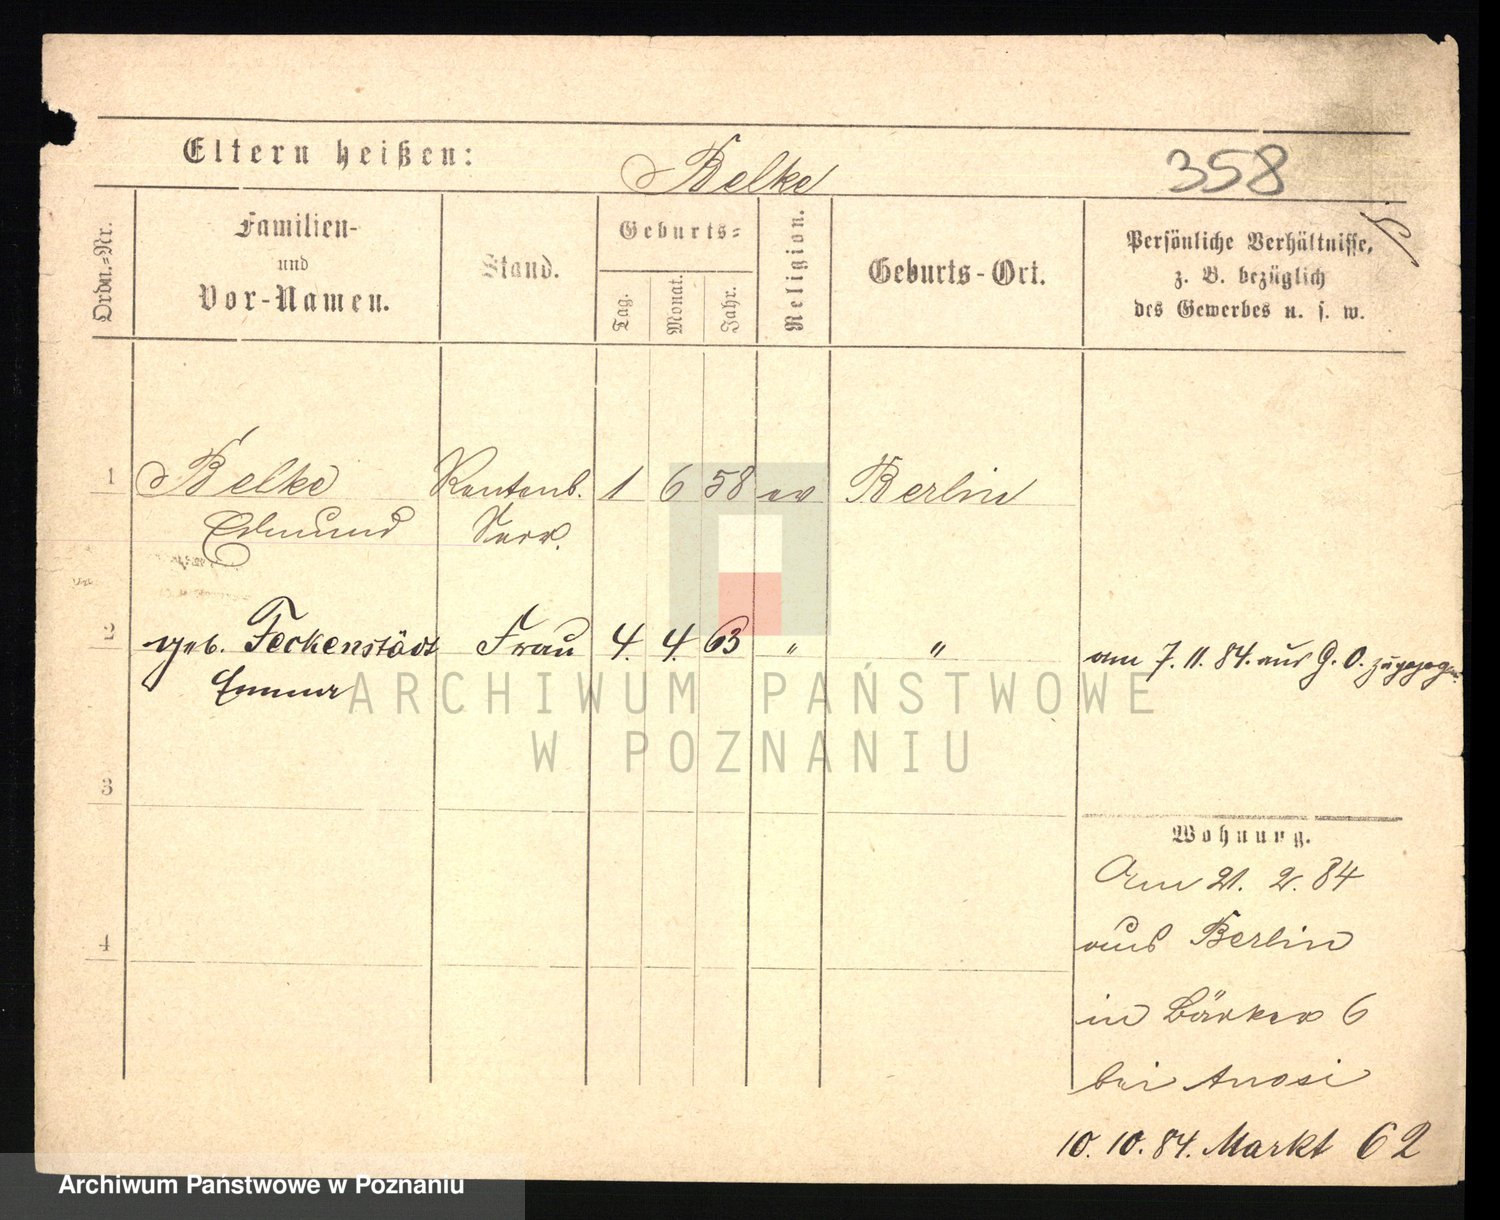 Eltern heißen: Belke 358
Ordn.=Nr.
Familien-
und
Vor-Namen.
Stand.
Geburts=
Tag.
Monat.
Jahr.
Religion.
Geburts-Ort.
Persönliche Verhältnisse,
z. B. bezüglich
des Gewerbes u. s. w.
1 Belke Rentenb. 1 6 58 ev Berlin
Edmund
2 geb. Feckenstädt Frau 4. 4. 63 " " am 7. 11. 84. aus G. O. zugezogen.
Emma
3
4
Wohnung.
Am 21. 2. 84
aus Berlin
in Bäcker 6
bei Anosi
10. 10. 84. Markt 62
ARCHIWUM PAŃSTWOWE
W POZNANIU
Archiwum Państwowe w Poznaniu